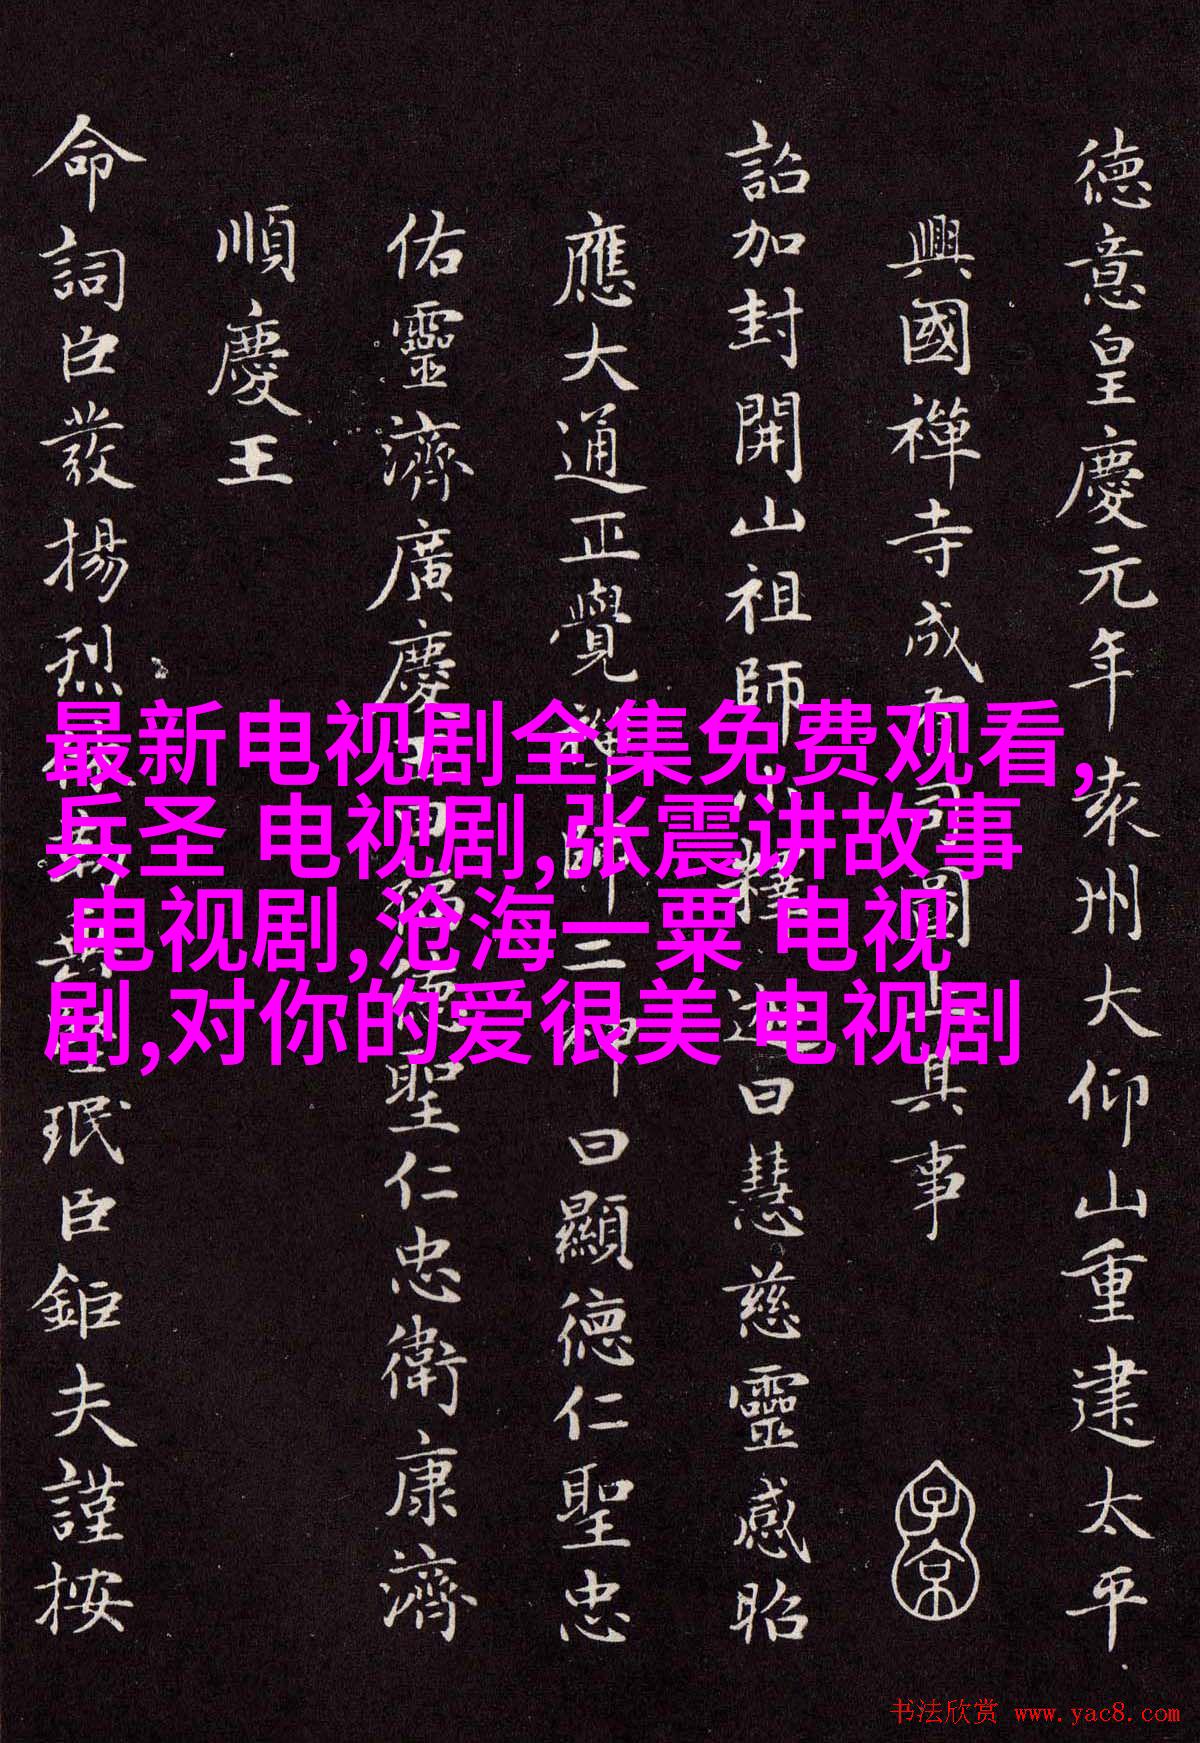 德意皇慶元年袁州大仰山重建太平
興國禪寺成
具事
詔加封開山祖師
曰慧慈靈感昭
應大通正覺禪師二神曰顯德仁聖忠
佑靈濟廣慶
德聖仁忠衛康濟
順慶王
命詞臣發揚
珉臣鉅夫謹按
子京
最新电视剧全集免费观看,
兵圣 电视剧,张震讲故事
电视剧,沧海一粟 电视
剧,对你的爱很美 电视剧
书法欣赏 www.yac8.com